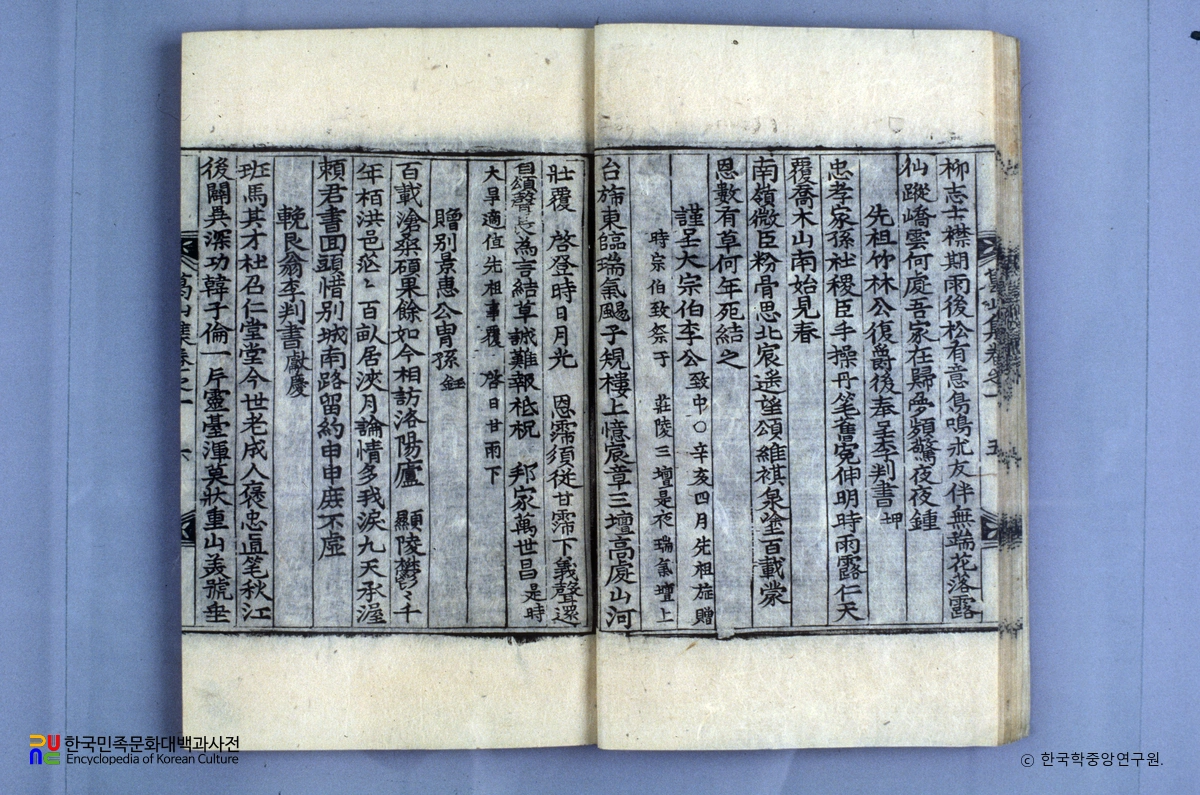 柳志士襟期雨後松有意鳥鳴求友伴無端花落露
仙蹤嶠雲何處吾家在歸夢頻驚夜夜鍾
先祖竹林公復爵後奉呈李判書坤
忠孝家孫社稷臣手操丹笔舊寃伸明時雨露仁天
覆喬木山南始見春
南嶺微臣粉骨思北宸遥望頌維祺泉塗百載蒙
恩數有草何年死結之
謹呈大宗伯李公致中○辛亥四月先祖旌贈
時宗伯致祭于 莊陵三壇是夜 瑞氣壇上
台旆東臨瑞氣颺子規樓上憶宸章三壇高處山河
壯覆 啓登時日月光 恩霈須従甘霈下義聲還
自頌聲長為言結草誠難報祗祝 邦家萬世昌是時
大旱適値先祖事覆 啓日甘雨下
贈別景惠公冑孫鈺
百載滄桑碩果餘如今相訪洛陽廬 顯陵鬱々千
年栢洪邑茫々百畝居浹月論情多我淚九天承渥
頼君書回頭惜别城南路留約申申庶不虛
輓艮翁李判書獻慶
班馬其才杜召仁堂堂今世老成人褒忠直笔秋江
後闢異深功韓子倫一斥靈臺渾莫狀重山美號坐
萬山集卷之一 五
萬山集卷之一 六
한국민족문화대백과사전
Encyclopedia of Korean Culture
© 한국학중앙연구원.